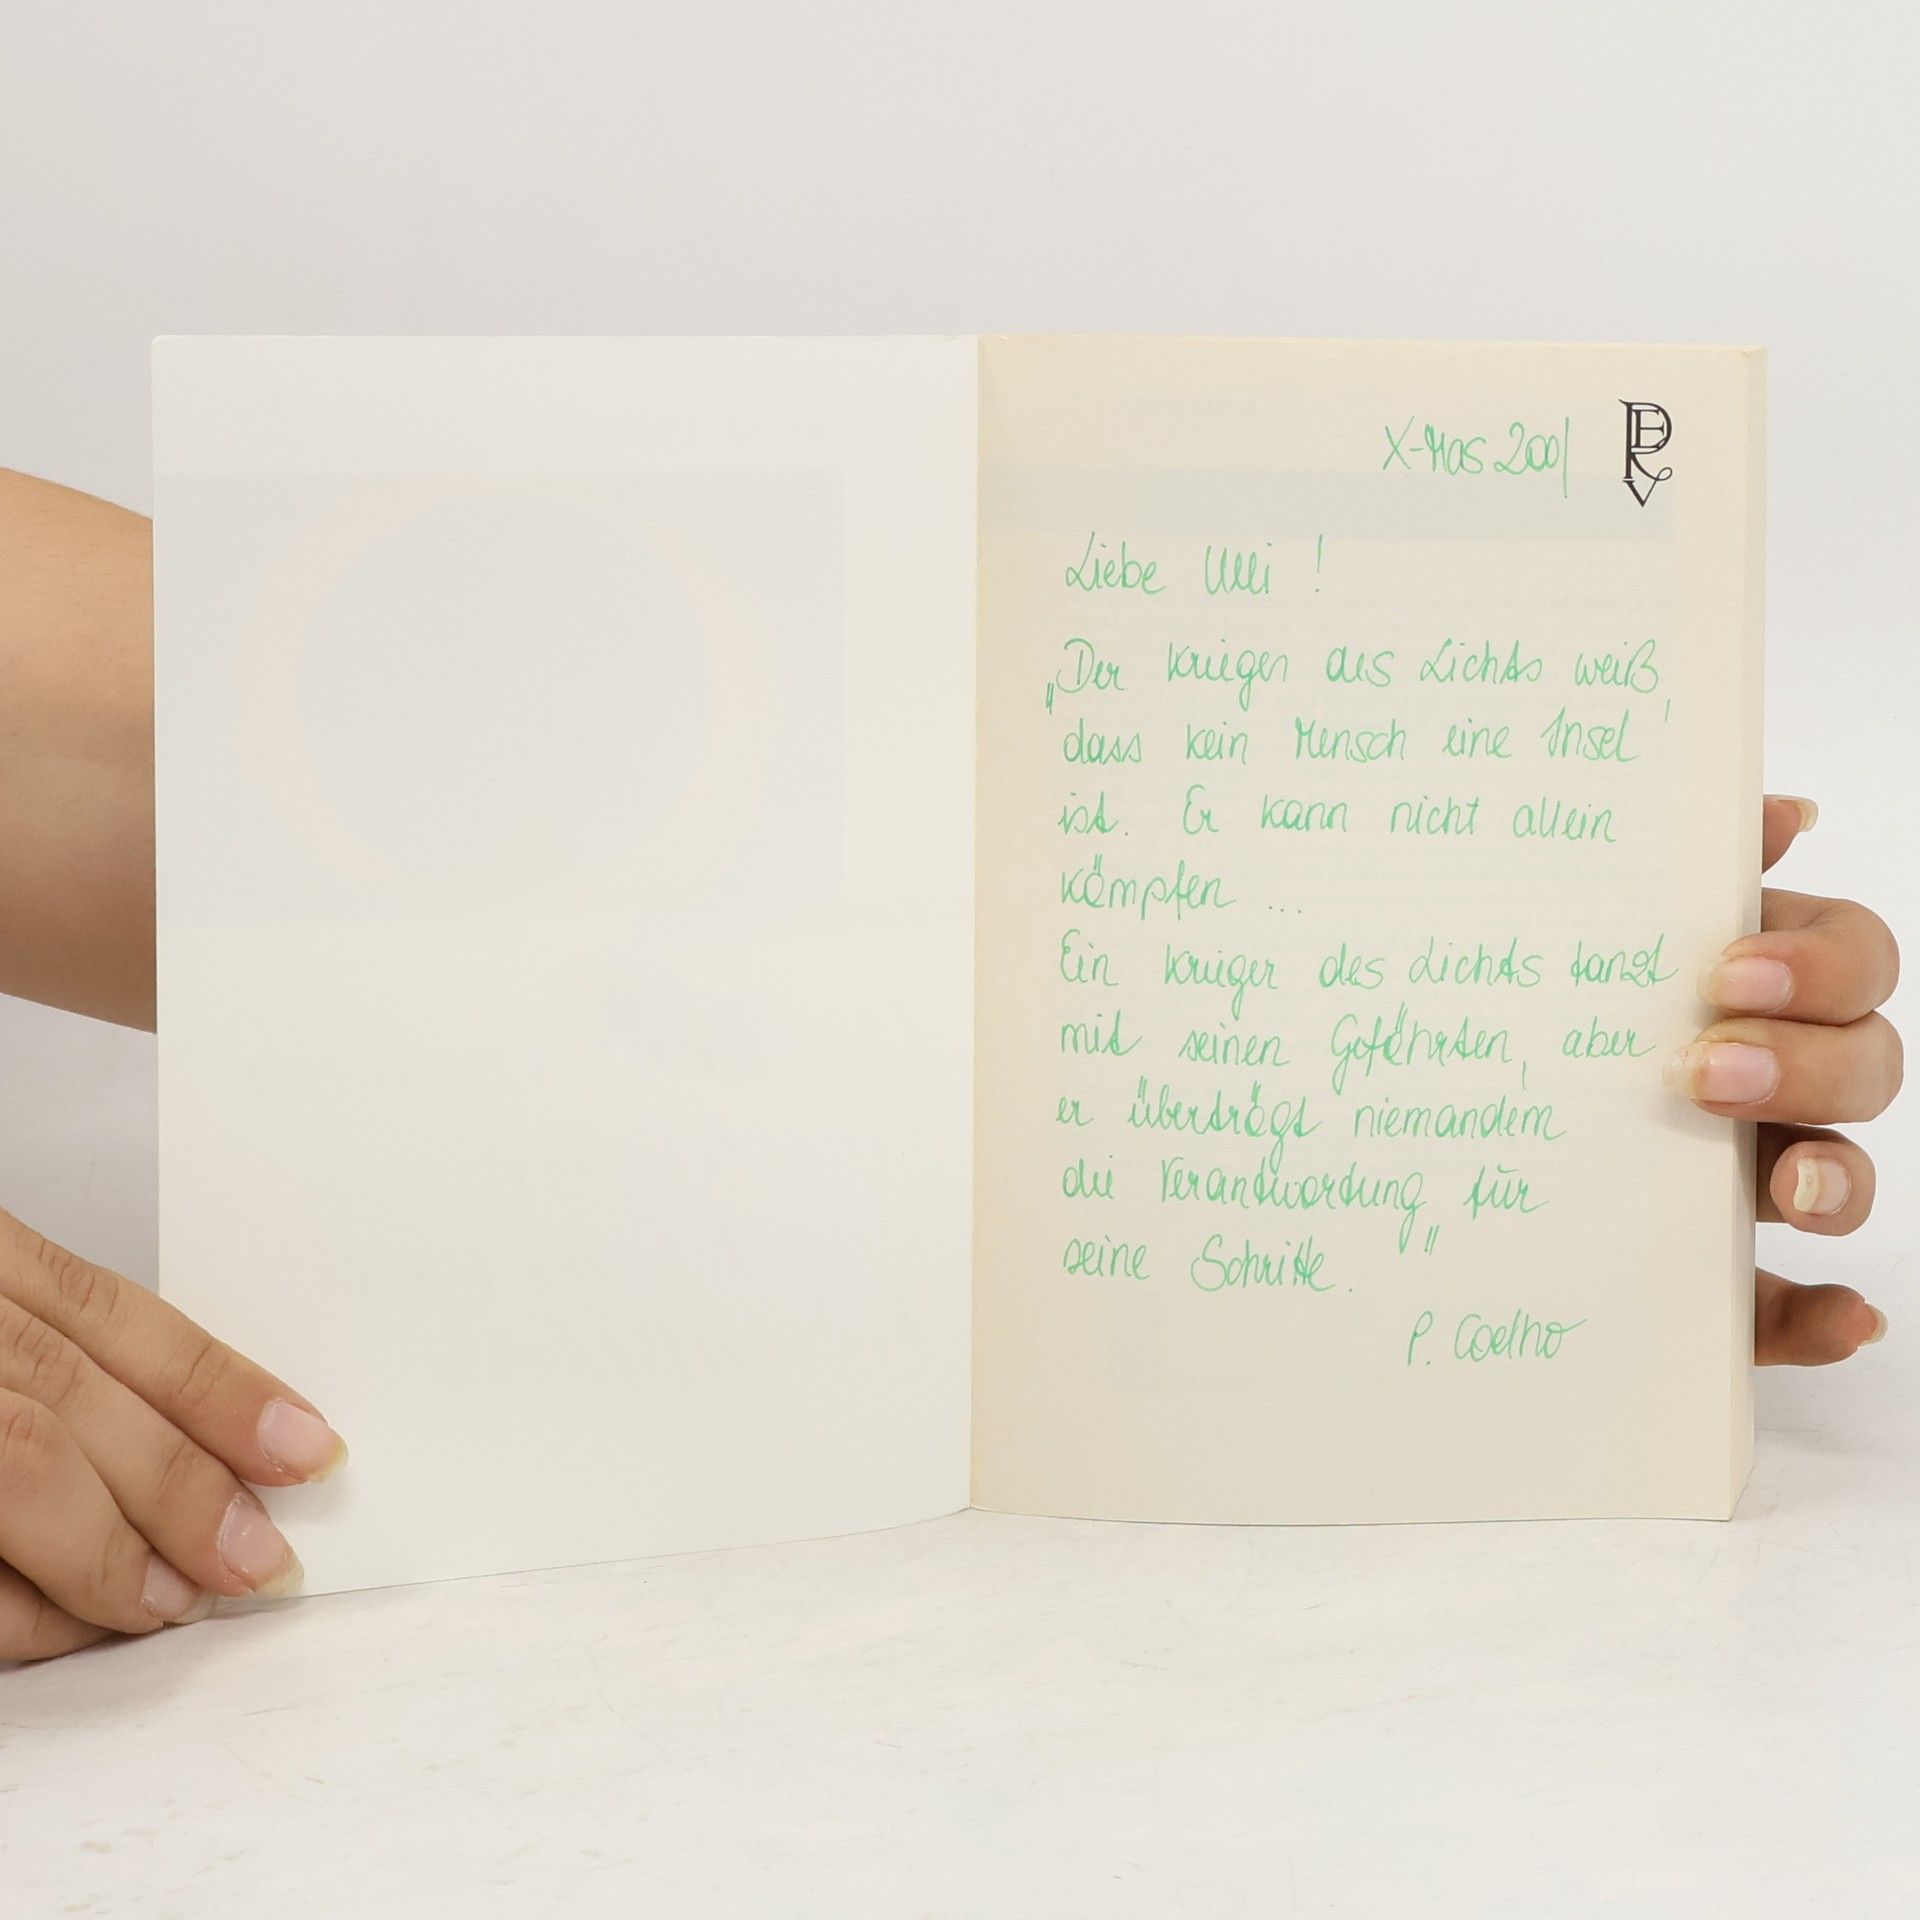 X-Mas 2001
Liebe Ulli !
„Der Krieger des Lichts weiß,
dass kein Mensch eine Insel
ist. Er kann nicht allein
kämpfen ...
Ein Krieger des Lichts tanzt
mit seinen Gefährten, aber
er überträgt niemandem
die Verantwortung für
seine Schritte."
P. Coelho